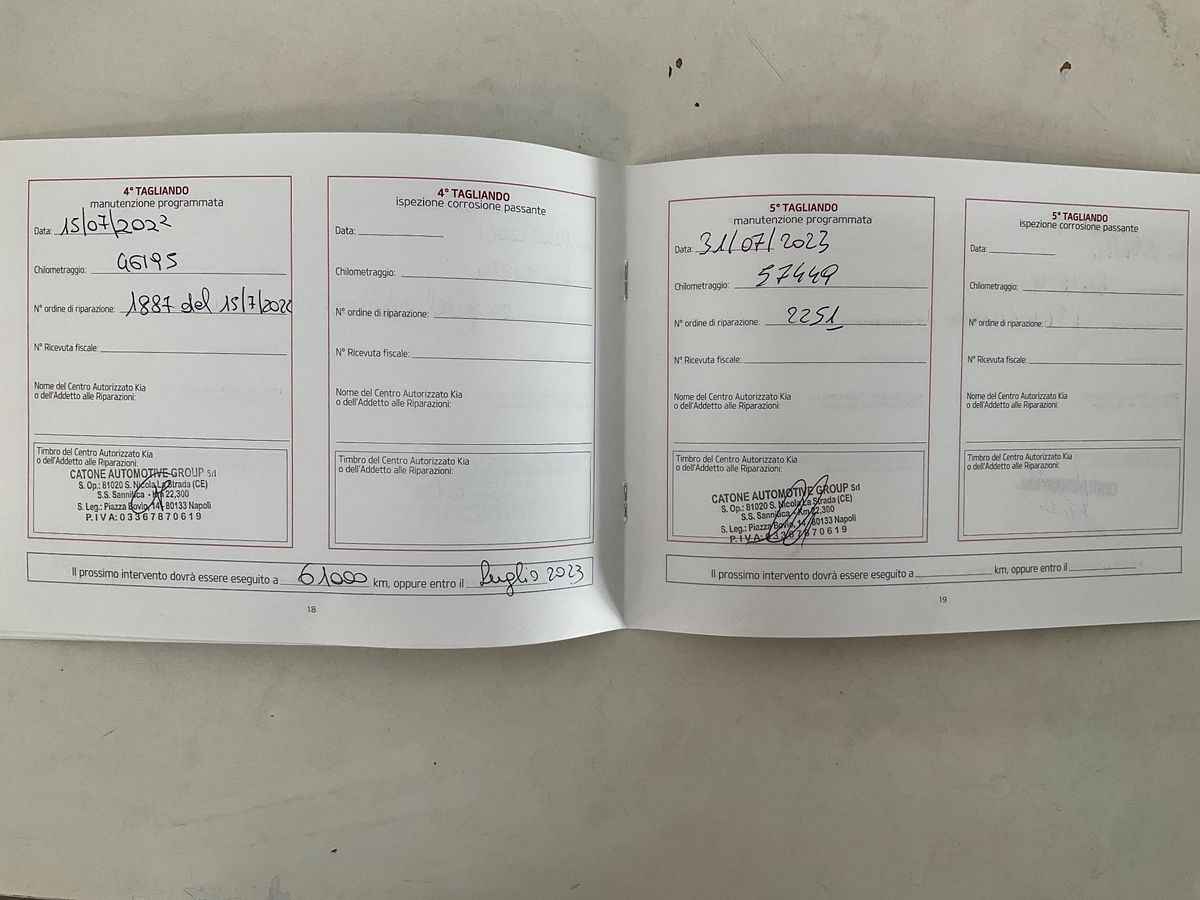 4° TAGLIANDO
manutenzione programmata
Data: 15/07/2022
Chilometraggio: 46195
N° ordine di riparazione: 1887 del 15/7/2022
N° Ricevuta fiscale:
Nome del Centro Autorizzato Kia
o dell'Addetto alle Riparazioni:
Timbro del Centro Autorizzato Kia
o dell'Addetto alle Riparazioni:
CATONE AUTOMOTIVE GROUP Srl
S. Op.: 81020 S. Nicola La Strada (CE)
S.S. Sannitica - Km 22,300
S. Leg.: Piazza Bovio, 14 - 80133 Napoli
P. IVA: 03367870619
4° TAGLIANDO
ispezione corrosione passante
Data:
Chilometraggio:
N° ordine di riparazione:
N° Ricevuta fiscale:
Nome del Centro Autorizzato Kia
o dell'Addetto alle Riparazioni:
Timbro del Centro Autorizzato Kia
o dell'Addetto alle Riparazioni:
Il prossimo intervento dovrà essere eseguito a 61000 km, oppure entro il luglio 2023
18
5° TAGLIANDO
manutenzione programmata
Data: 31/07/2023
Chilometraggio: 57449
N° ordine di riparazione: 2251
N° Ricevuta fiscale:
Nome del Centro Autorizzato Kia
o dell'Addetto alle Riparazioni:
Timbro del Centro Autorizzato Kia
o dell'Addetto alle Riparazioni:
CATONE AUTOMOTIVE GROUP Srl
S. Op.: 81020 S. Nicola La Strada (CE)
S.S. Sannitica - Km 22,300
S. Leg.: Piazza Bovio, 14 - 80133 Napoli
P. IVA: 03367870619
5° TAGLIANDO
ispezione corrosione passante
Data:
Chilometraggio:
N° ordine di riparazione:
N° Ricevuta fiscale:
Nome del Centro Autorizzato Kia
o dell'Addetto alle Riparazioni:
Timbro del Centro Autorizzato Kia
o dell'Addetto alle Riparazioni:
Il prossimo intervento dovrà essere eseguito a km, oppure entro il
19